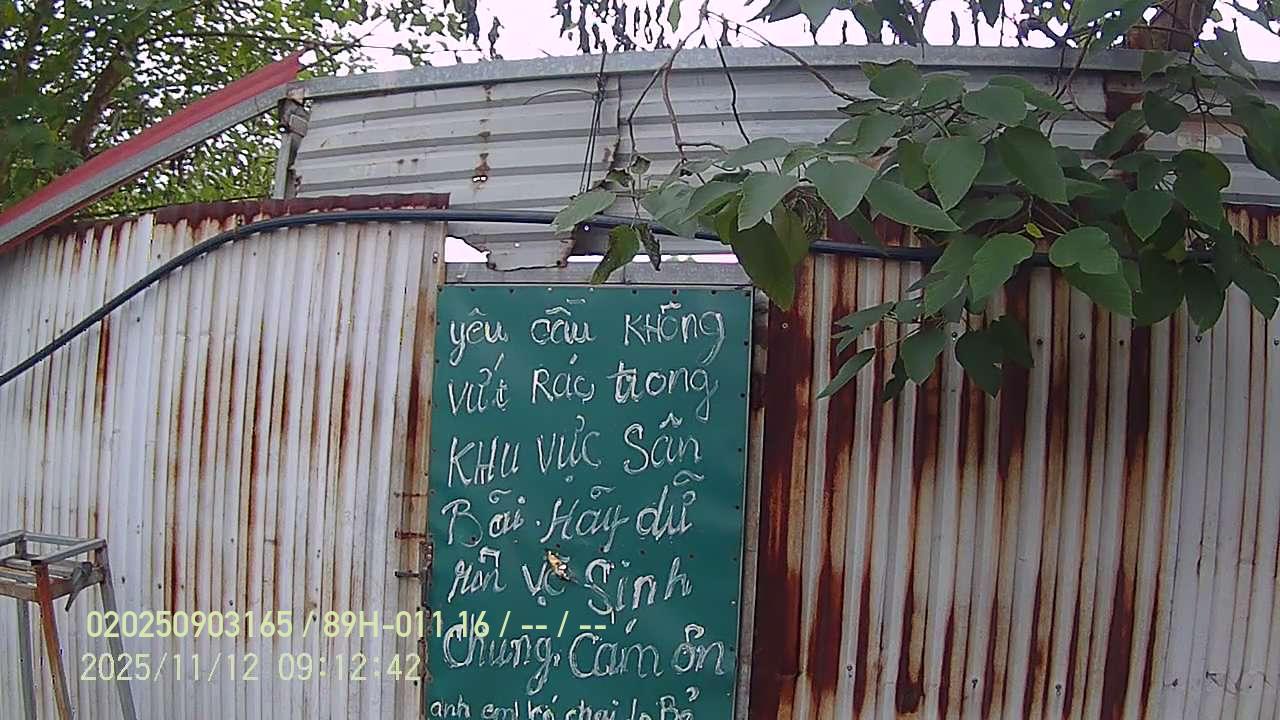 yêu cầu KHÔng
Vứt Rác trong
KHu Vực Sân
Bãi. Hãy dữ
Rìn Vệ Sinh
Chung. Cám ơn
anh em có chai lọ Bỏ
020250903165 / 89H-011.16 / -- / --
2025/11/12 09:12:42